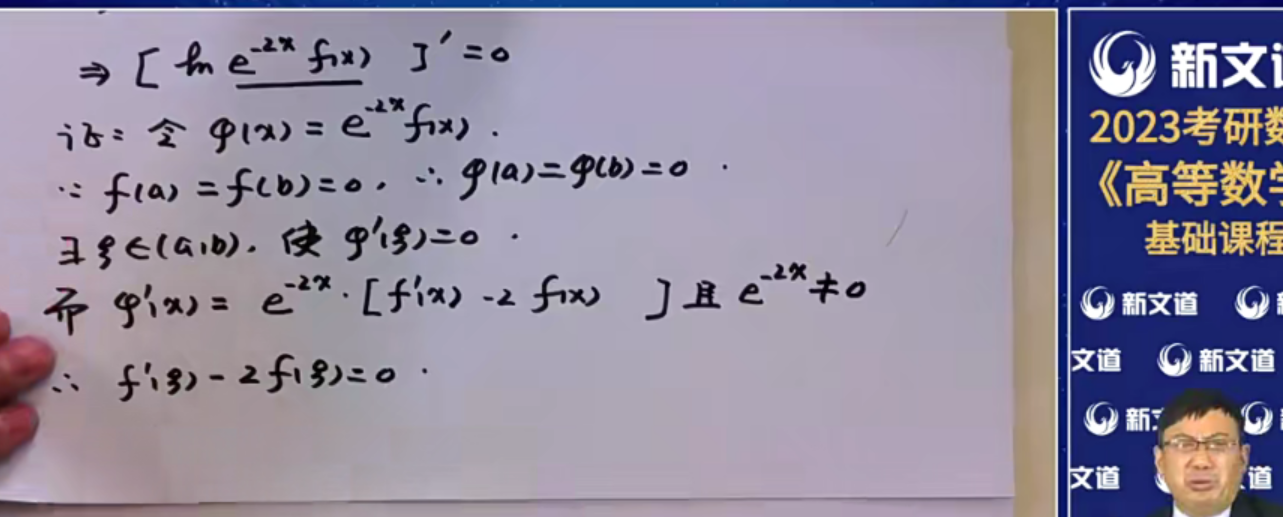 ⇒ [ ln e^{-2x} f(x) ]' = 0
证: 令 φ(x) = e^{-2x} f(x).
∵ f(a) = f(b) = 0, ∴ φ(a) = φ(b) = 0.
∃ ξ ∈ (a,b), 使 φ'(ξ) = 0.
而 φ'(x) = e^{-2x}·[f'(x) - 2 f(x) ] 且 e^{-2x} ≠ 0
∴ f'(ξ) - 2f(ξ) = 0.
新文
2023考研数
《高等数学
基础课程
新文道
文道 新文道
新
文道 道